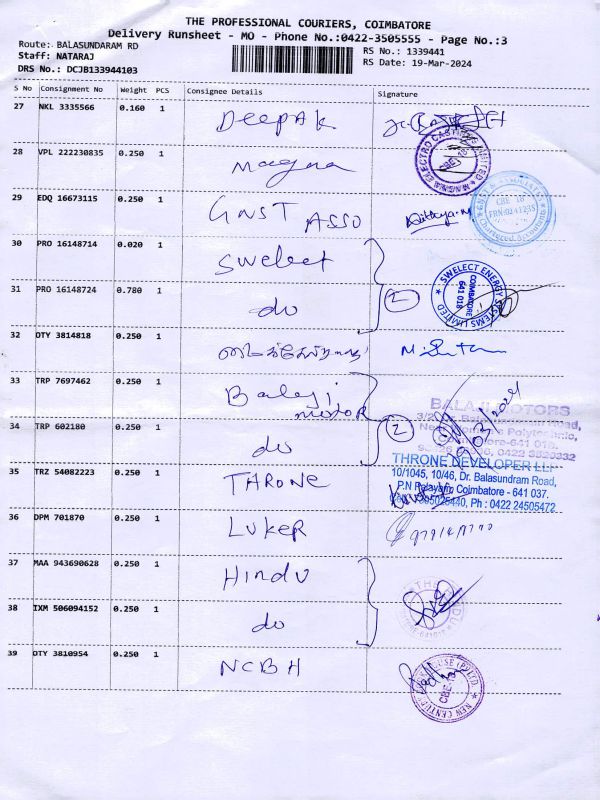 THE PROFESSIONAL COURIERS, COIMBATORE
Delivery Runsheet - MO - Phone No.:0422-3505555 - Page No.:3
Route: BALASUNDARAM RD
RS No.: 1339441
Staff: NATARAJ
RS Date: 19-Mar-2024
DRS No.: DCJB133944103
S No Consignment No Weight PCS Consignee Details Signature
27 NKL 3335566 0.160 1 Deepak
28 VPL 222230835 0.250 1 Magna
MAGNA ELECTRO CASTINGS LIMITED
29 EDQ 16673115 0.250 1 GNST ASSO
CBE 18
30 PRO 16148714 0.020 1 Swelect
31 PRO 16148724 0.780 1 do 2
SWELECT ENERGY SYSTEMS LIMITED
COIMBATORE
641 018
32 OTY 3814818 0.250 1
33 TRP 7697462 0.250 1 Balaji
motor
BALAJI MOTORS
34 TRP 602180 0.250 1 do 2
THRONE DEVELOPER LLP
10/1045, 10/46, Dr. Balasundram Road,
P.N Palayam Coimbatore - 641 037.
Ph : 0422 24505472
35 TRZ 54082223 0.250 1 THRONE
36 DPM 701870 0.250 1 LUKER
37 MAA 943690628 0.250 1 Hindu
38 IXM 506094152 0.250 1 do
THE HINDU
39 OTY 3810954 0.250 1 NCBH
NEW CENTURY